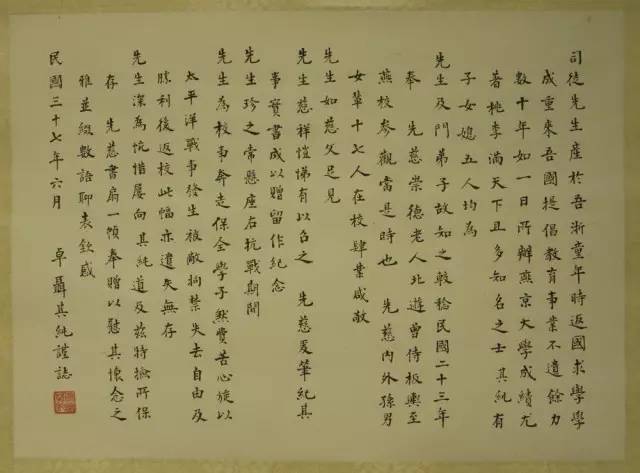 司徒先生產於吾浙童年時返國求學學
成重來吾國提倡教育事業不遺餘力
數十年如一日所辦燕京大學成績尤
著桃李滿天下且多知名之士其純有
子女媳五人均為
先生及門弟子故知之較稔民國二十三年
奉 先慈崇德老人北遊曾侍板輿至
燕校參觀當是時也 先慈內外孫男
女輩十七人在校肄業咸敬
先生如慈父足見
先生慈祥愷悌有以召之 先慈爰筆紀其
事實書成以贈留作紀念
先生珍之常懸座右抗戰期間
先生為校事奔走保全學子煞費苦心旋以
太平洋戰事發生被敵拘禁失去自由及
勝利後返校此幅亦遺失無存
先生深為惋惜屢向其純道及茲特撿所保
存 先慈書扇一幀奉贈以慰其懷念之
雅並綴數語聊表欽感
民國三十七年六月 卓聶其純謹誌